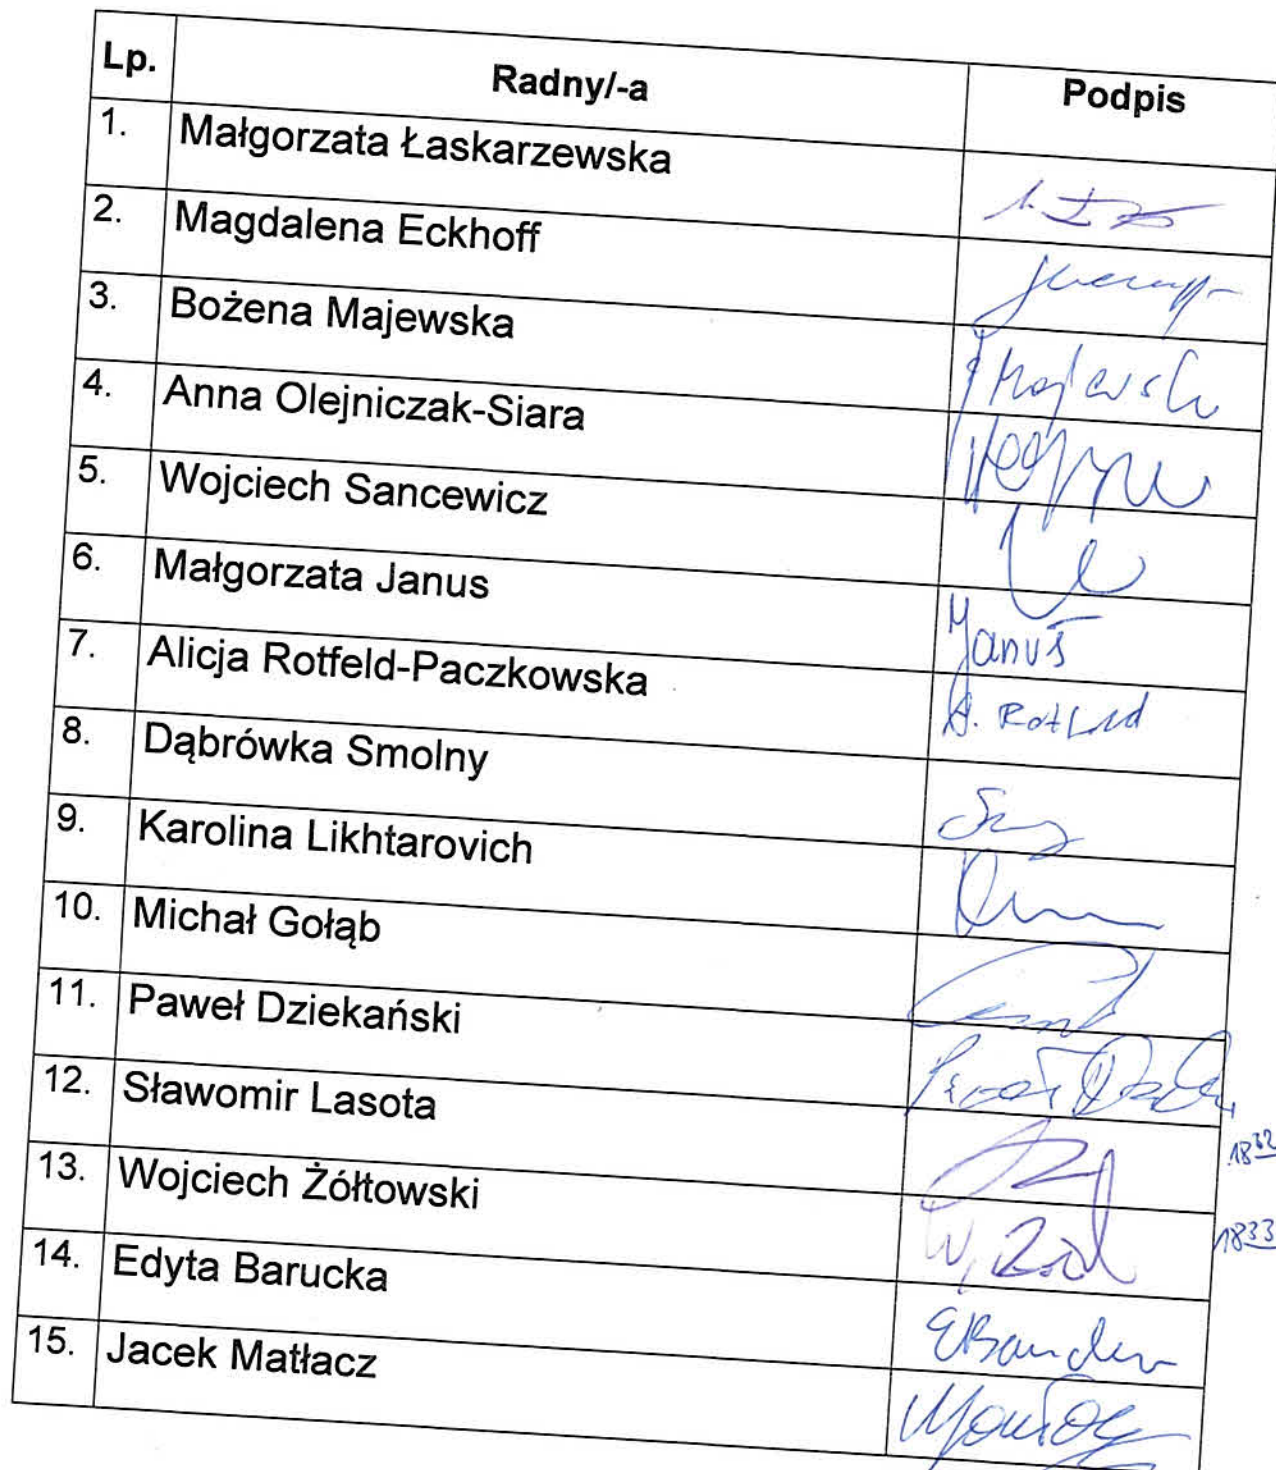 Lp. Radny/-a Podpis
1. Małgorzata Łaskarzewska
2. Magdalena Eckhoff
3. Bożena Majewska Majewska
4. Anna Olejniczak-Siara
5. Wojciech Sancewicz
6. Małgorzata Janus Janus
7. Alicja Rotfeld-Paczkowska A. Rotfeld
8. Dąbrówka Smolny
9. Karolina Likhtarovich
10. Michał Gołąb
11. Paweł Dziekański
12. Sławomir Lasota 18 32
13. Wojciech Żółtowski 18 33
14. Edyta Barucka
15. Jacek Matłacz